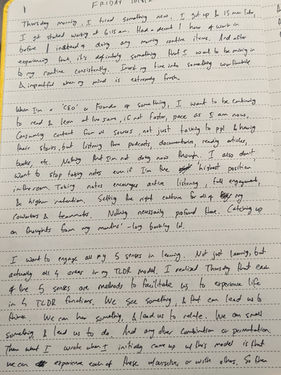 FRIDAY
Thursday morning, I tried something new, I got up & in an hour,
I got started working at 6:15 am. Had a decent 1 hour of work in
before I indulged in doing any morning routine items. And after
experiencing that, it's definitely something that I want to be moving in
to my routine consistently. Investing time into something worthwhile
& impactful when my mind is extremely fresh.
When I'm a "CEO" or Founder of something, I want to be continuing
to read & learn at the same, if not faster, pace as I am now,
Consuming content from all sources, not just talking to ppl & hearing
their stories, but listening to podcasts, documentaries, reading articles,
books, etc. Nothing that I'm not doing now though. I also don't
want to stop taking notes even if I'm the "highest position"
in the room. Taking notes encourages active listening, full engagement,
& higher retention. Setting the right culture for all of my
coworkers & teammates. Nothing necessarily profound there. Catching up
on thoughts from my months'-long backlog lol.
I want to engage all my 5 senses in learning. Not just learning, but
actually all 4 areas in my TLDR model. I realized Thursday that each
of the 5 senses are methods to facilitate us to experience life
in 4 TLDR functions. We see something, & that can lead us to
think. We can hear something, & lead us to relate. We can smell
something & lead us to do. And any other combination or permutation.
Then what I wrote when I initially came up w/ this model is that
we can experience each of these ourselves or with others. So then